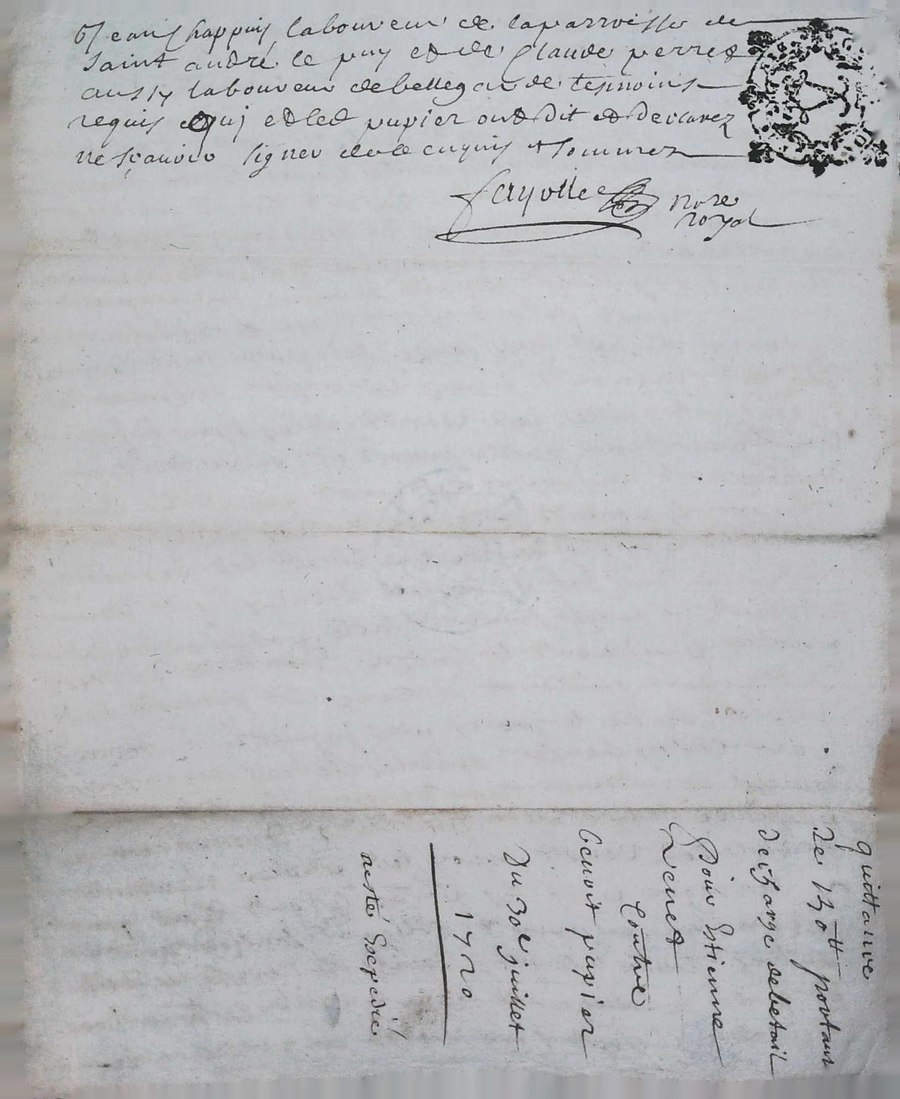 Jean Chappuis laboureur de la parroisse de
Saint andré le puy et de Glaude perret
aussy laboureur de bellegarde tesmoins
requis qui et led pupier ont dit et declarez
ne sçavoir signer de ce enquis et sommez
fayolle nore
royal
quittance
de 130tt portant
decharge de betail
pour Estienne
contre
benoit pupier
Du 30e juillet
1720
a esté Expedié